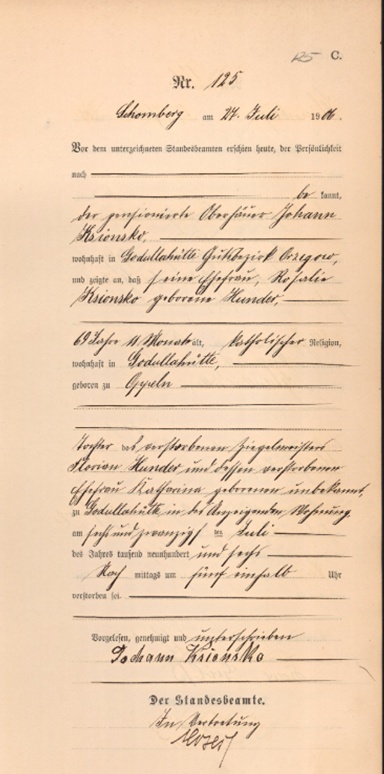 125 C.
Nr. 125
Schomberg am 27. Juli 1906.
Vor dem unterzeichneten Standesbeamten erschien heute, der Persönlichkeit
nach
be kannt,
der pensionierte Oberhäuer Johann
Ksionsko,
wohnhaft in Godullahütte Gutsbezirk Orzegow,
und zeigte an, daß seine Ehefrau, Rosalie
Ksionsko geborene Hunder,
69 Jahre 11 Monat alt, katholischer Religion,
wohnhaft in Godullahütte,
geboren zu Oppeln
Tochter des verstorbenen Ziegelmeisters
Florian Hunder und dessen verstorbenen
Ehefrau Katharina geborenen unbekannt,
zu Godullahütte in des Anzeigenden Wohnung
am sechsundzwanzigsten Juli
des Jahres tausend neunhundert und sechs
Nach mittags um fünf einhalb Uhr
verstorben sei.
Vorgelesen, genehmigt und unterschrieben
Johann Ksionsko
Der Standesbeamte.
In Vertretung